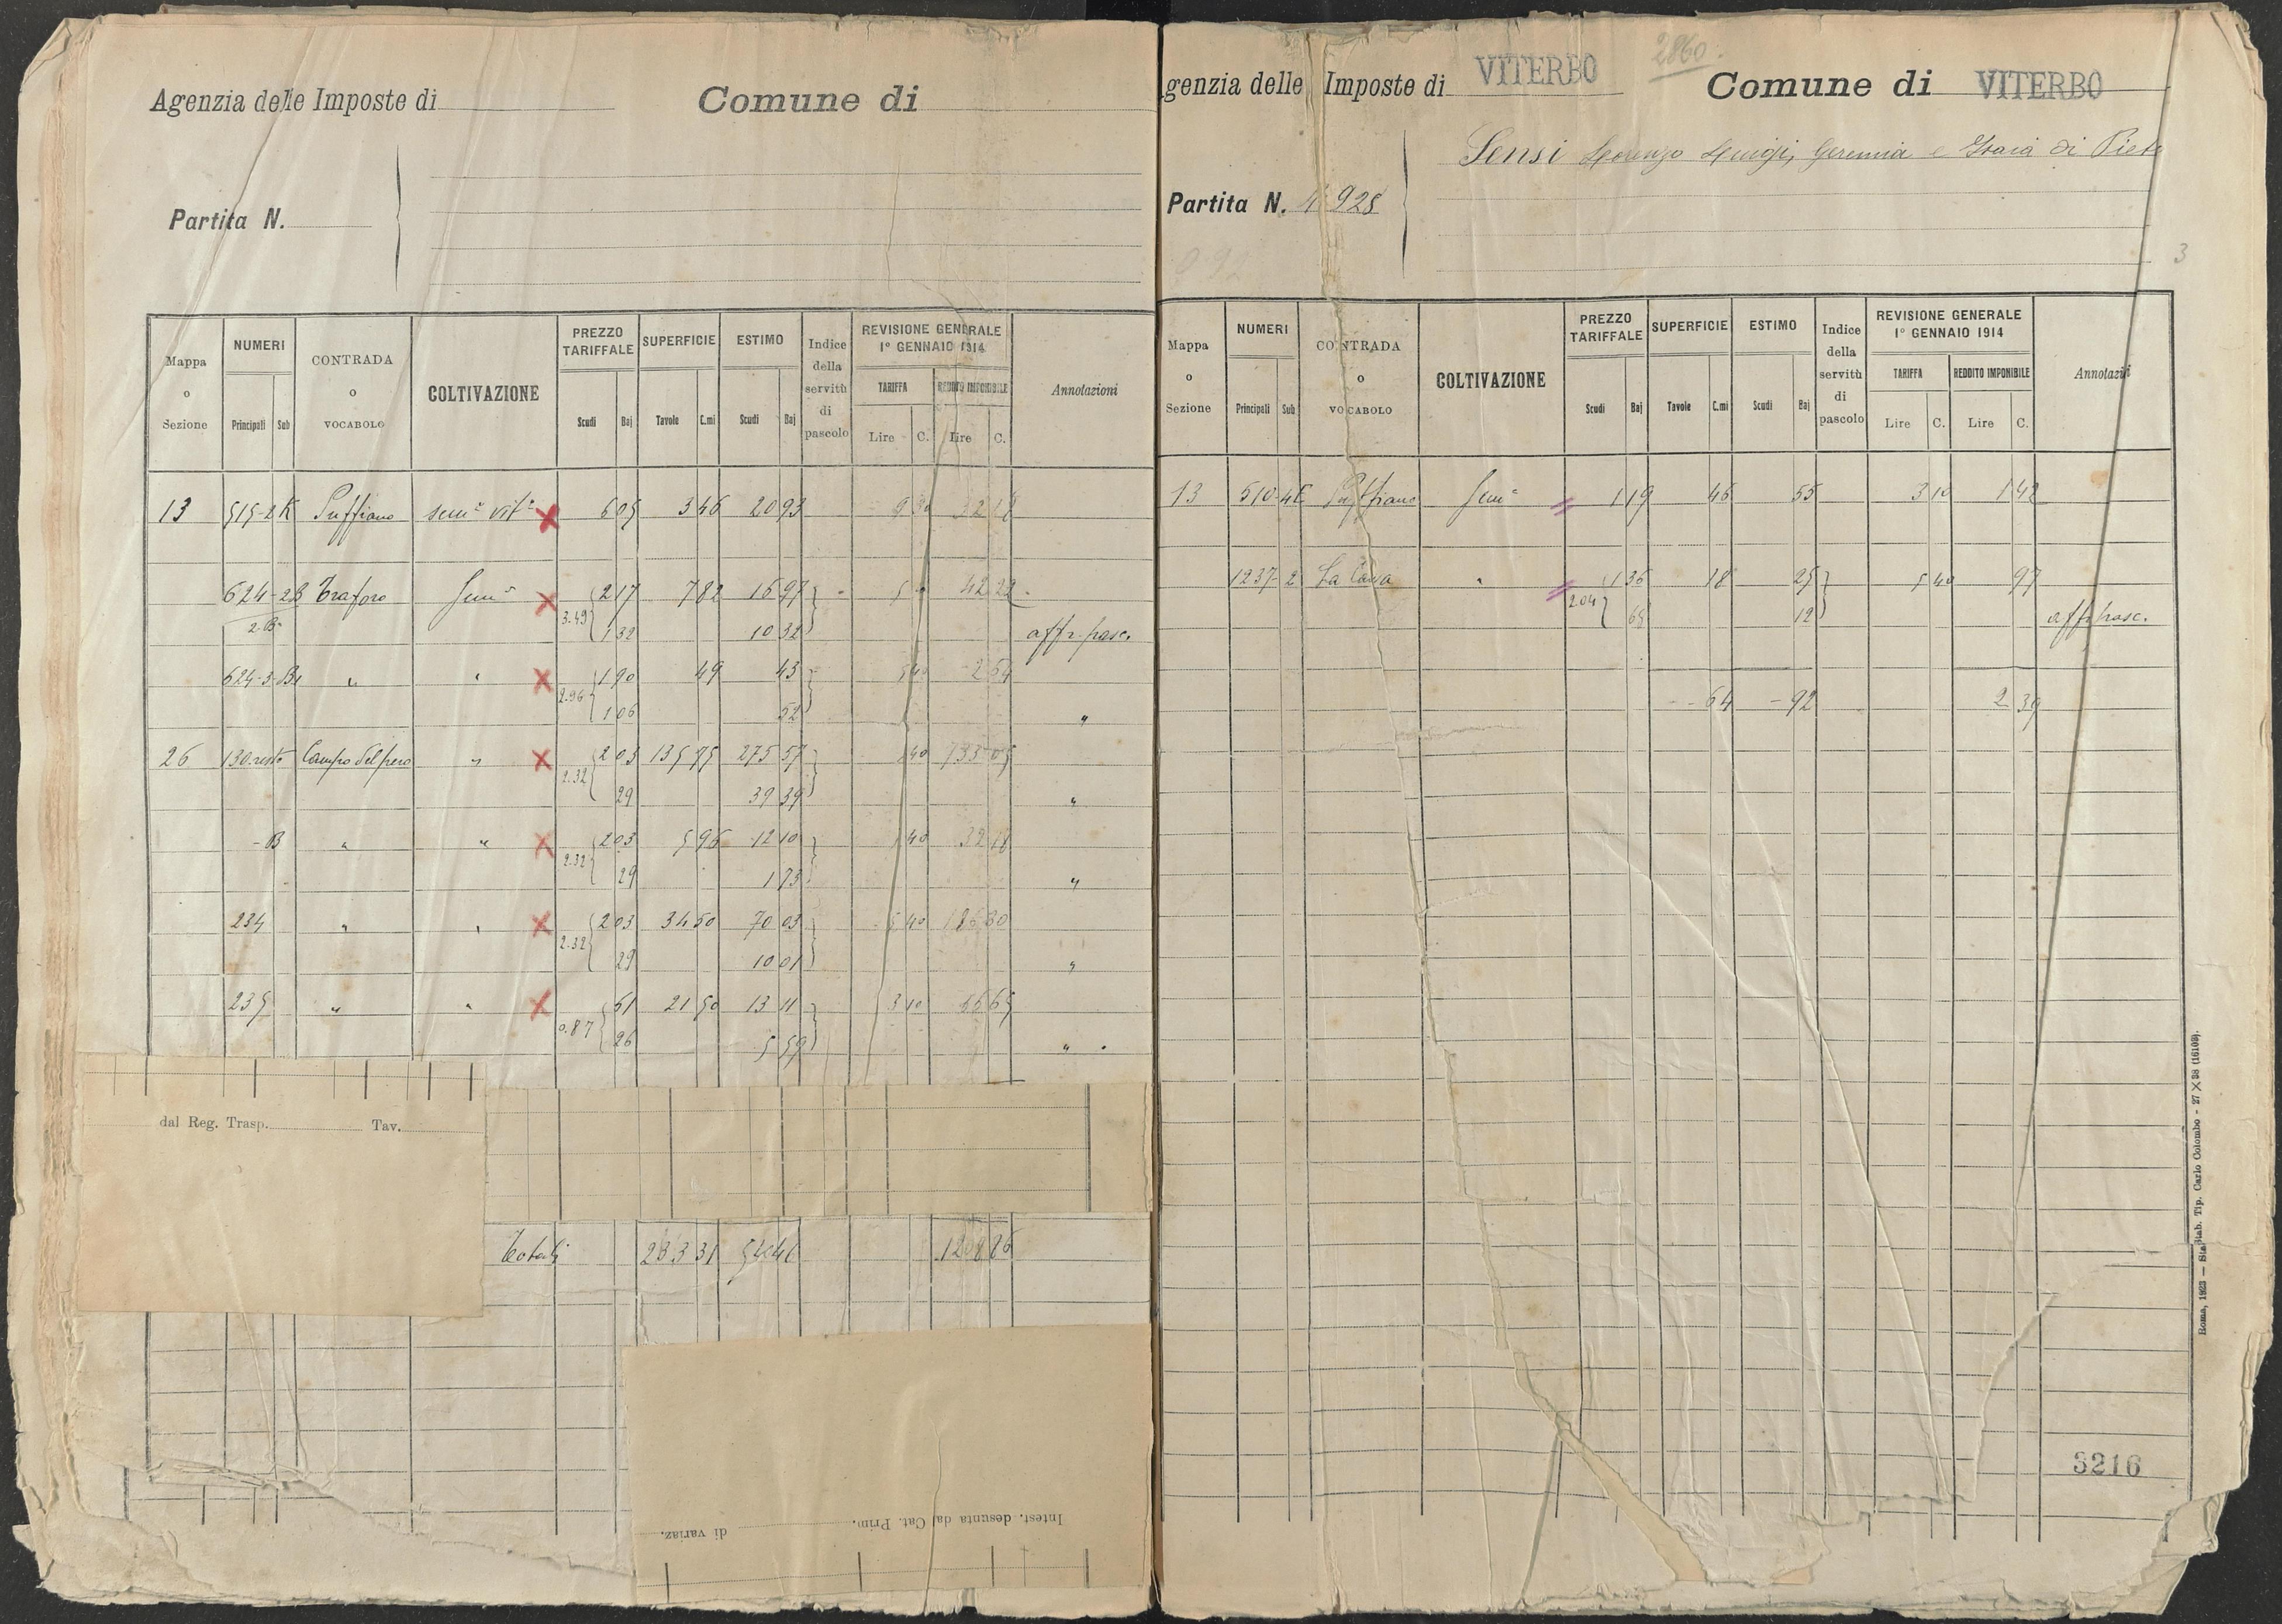 Agenzia delle Imposte di
Comune di
Partita N.
Mappa o Sezione
NUMERI
Principali Sub
CONTRADA o VOCABOLO
COLTIVAZIONE
PREZZO TARIFFALE
Scudi Baj
SUPERFICIE
Tavole C.mi
ESTIMO
Scudi Baj
Indice della servitù di pascolo
REVISIONE GENERALE
1° GENNAIO 1914
TARIFFA
Lire C.
REDDITO IMPONIBILE
Lire C.
Annotazioni
13 515-2 K Puffiano sem° vit° 6 05 3 46 20 93 9 30 32 18
624-2B Traforo Sem° 2 17 7 82 16 97 42 22
2.B. 3.49 1 32 10 32 aff. pasc.
624-3-B1 " " 1 90 49 2 64
2.96 1 06 52 "
26 130 resto Campo del pero " 2 03 135 75 275 57 5 40 733 05
2.32 29 39 39 "
-B " " 2 03 5 96 12 10 5 40 32 18
2.32 29 1 73 "
234 " " 2 03 34 50 70 03 5 40 186 30
2.32 29 10 01 "
235 " " 61 21 50 13 11 3 10 66 65
0.87 26 5 59 "
dal Reg. Trasp. Tav.
Totali
Intest. desunta dal Cat. Prim.
di variaz.
genzia delle Imposte di VITERBO
2860
Comune di VITERBO
Sensi Lorenzo Luigi, Geremia e Isaia di Piet
Partita N. 4928
0.92
3
Mappa o Sezione
NUMERI
Principali Sub
CONTRADA o VOCABOLO
COLTIVAZIONE
PREZZO TARIFFALE
Scudi Baj
SUPERFICIE
Tavole C.mi
ESTIMO
Scudi Baj
Indice della servitù di pascolo
REVISIONE GENERALE
1° GENNAIO 1914
TARIFFA
Lire C.
REDDITO IMPONIBILE
Lire C.
Annotazi
13 510 4E Puffiano Sem° 1 19 46 55 3 10 1 42
1237-2 La Cava " 1 36 18 25 5 40 97
2.04 68 12 aff. pasc.
- 64 - 92 2 39
3216
Roma, 1923 — Stab. Tip. Carlo Colombo - 27 X 38 (16109).